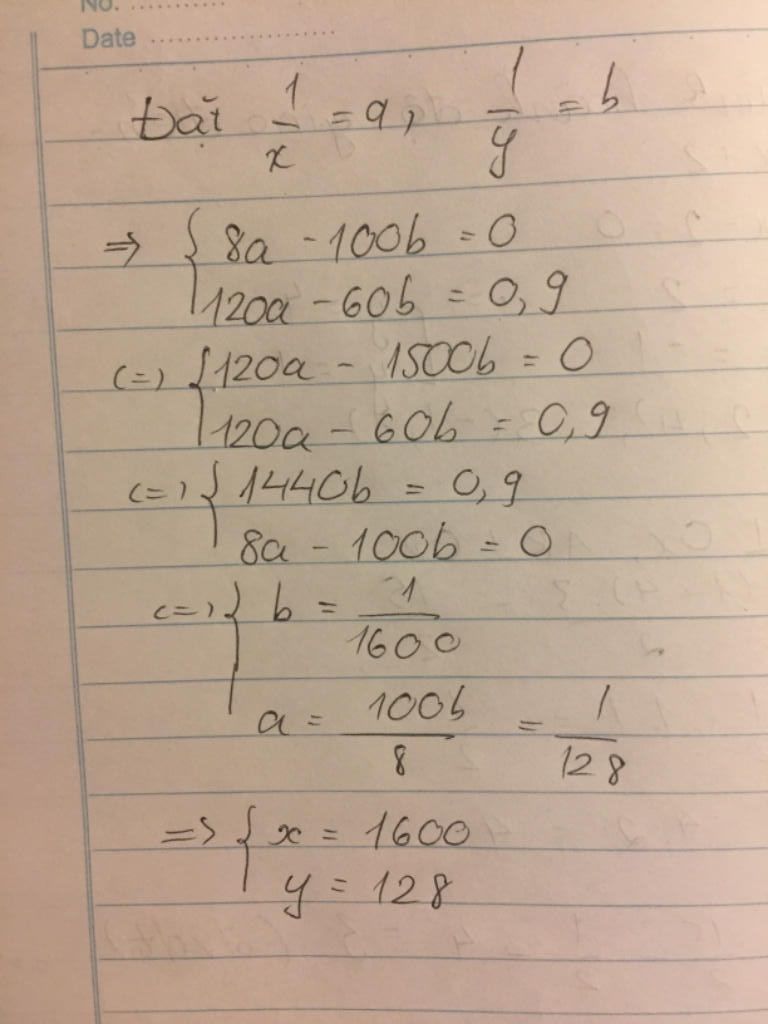 No. ............
Date ........................
Đặt 1/x = a, 1/y = b
=> { 8a - 100b = 0
120a - 60b = 0,9
(=) { 120a - 1500b = 0
120a - 60b = 0,9
(=) { 1440b = 0,9
8a - 100b = 0
(=) { b = 1/1600
a = 100b/8 = 1/128
=> { x = 1600
y = 128